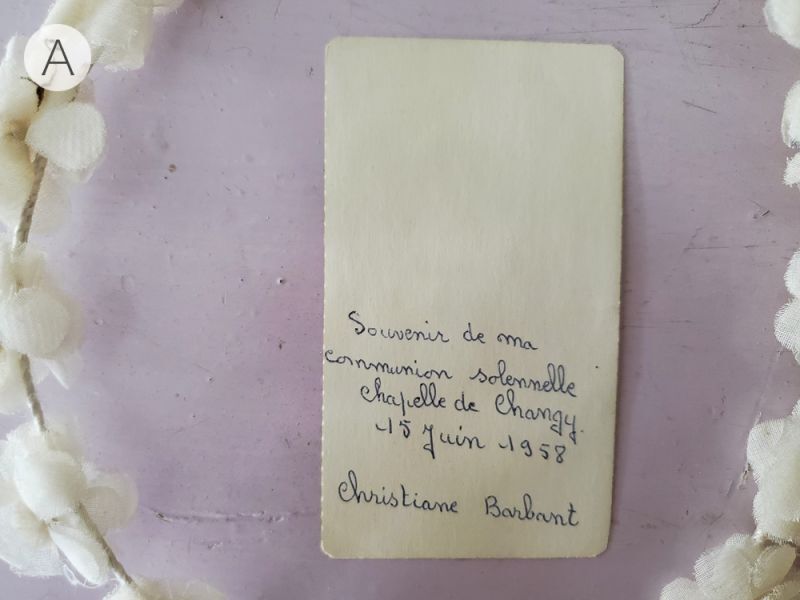 A
Souvenir de ma
communion solennelle
Chapelle de Changy.
15 Juin 1958
Christiane Barbant